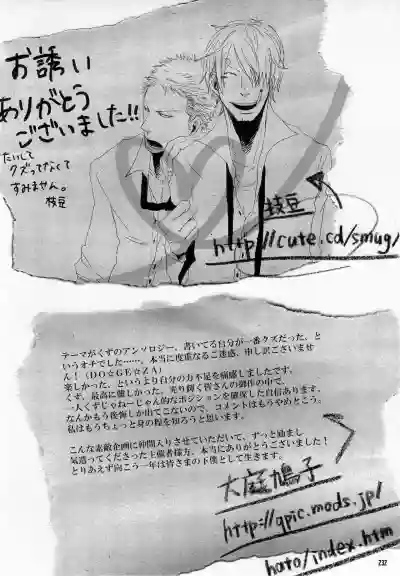 お誘い
ありがとう
ございました!!
たいして
クズってなくて
すみません。
枝豆
枝豆
http://cute.cd/smug/
テーマがくずのアンソロジー、書いてる自分が一番クズだった、と
いうオチでした……。本当に度重なるご迷惑、申し訳ございませ
ん!(DO☆GE☆ZA)
楽しかった、というより自分の力不足を痛感しましたです。
くず、最高に難しかった。光り輝く皆さんの御作の中で、
一人くずじゃねーじゃん的なポジションを確保した自信あります。
なんかもう後悔しか出てこないので、コメントはもうやめとこう。
私はもうちょっと身の程を知ろうと思います。
こんな素敵企画に仲間入りさせていただいて、ずっと励まし
気遣ってくださった主催者様方、本当にありがとうございました!
とりあえず向こう一年は皆さまの下僕として生きます。
大庭鳩子
http://qpic.mods.jp/
hato/index.htm
232